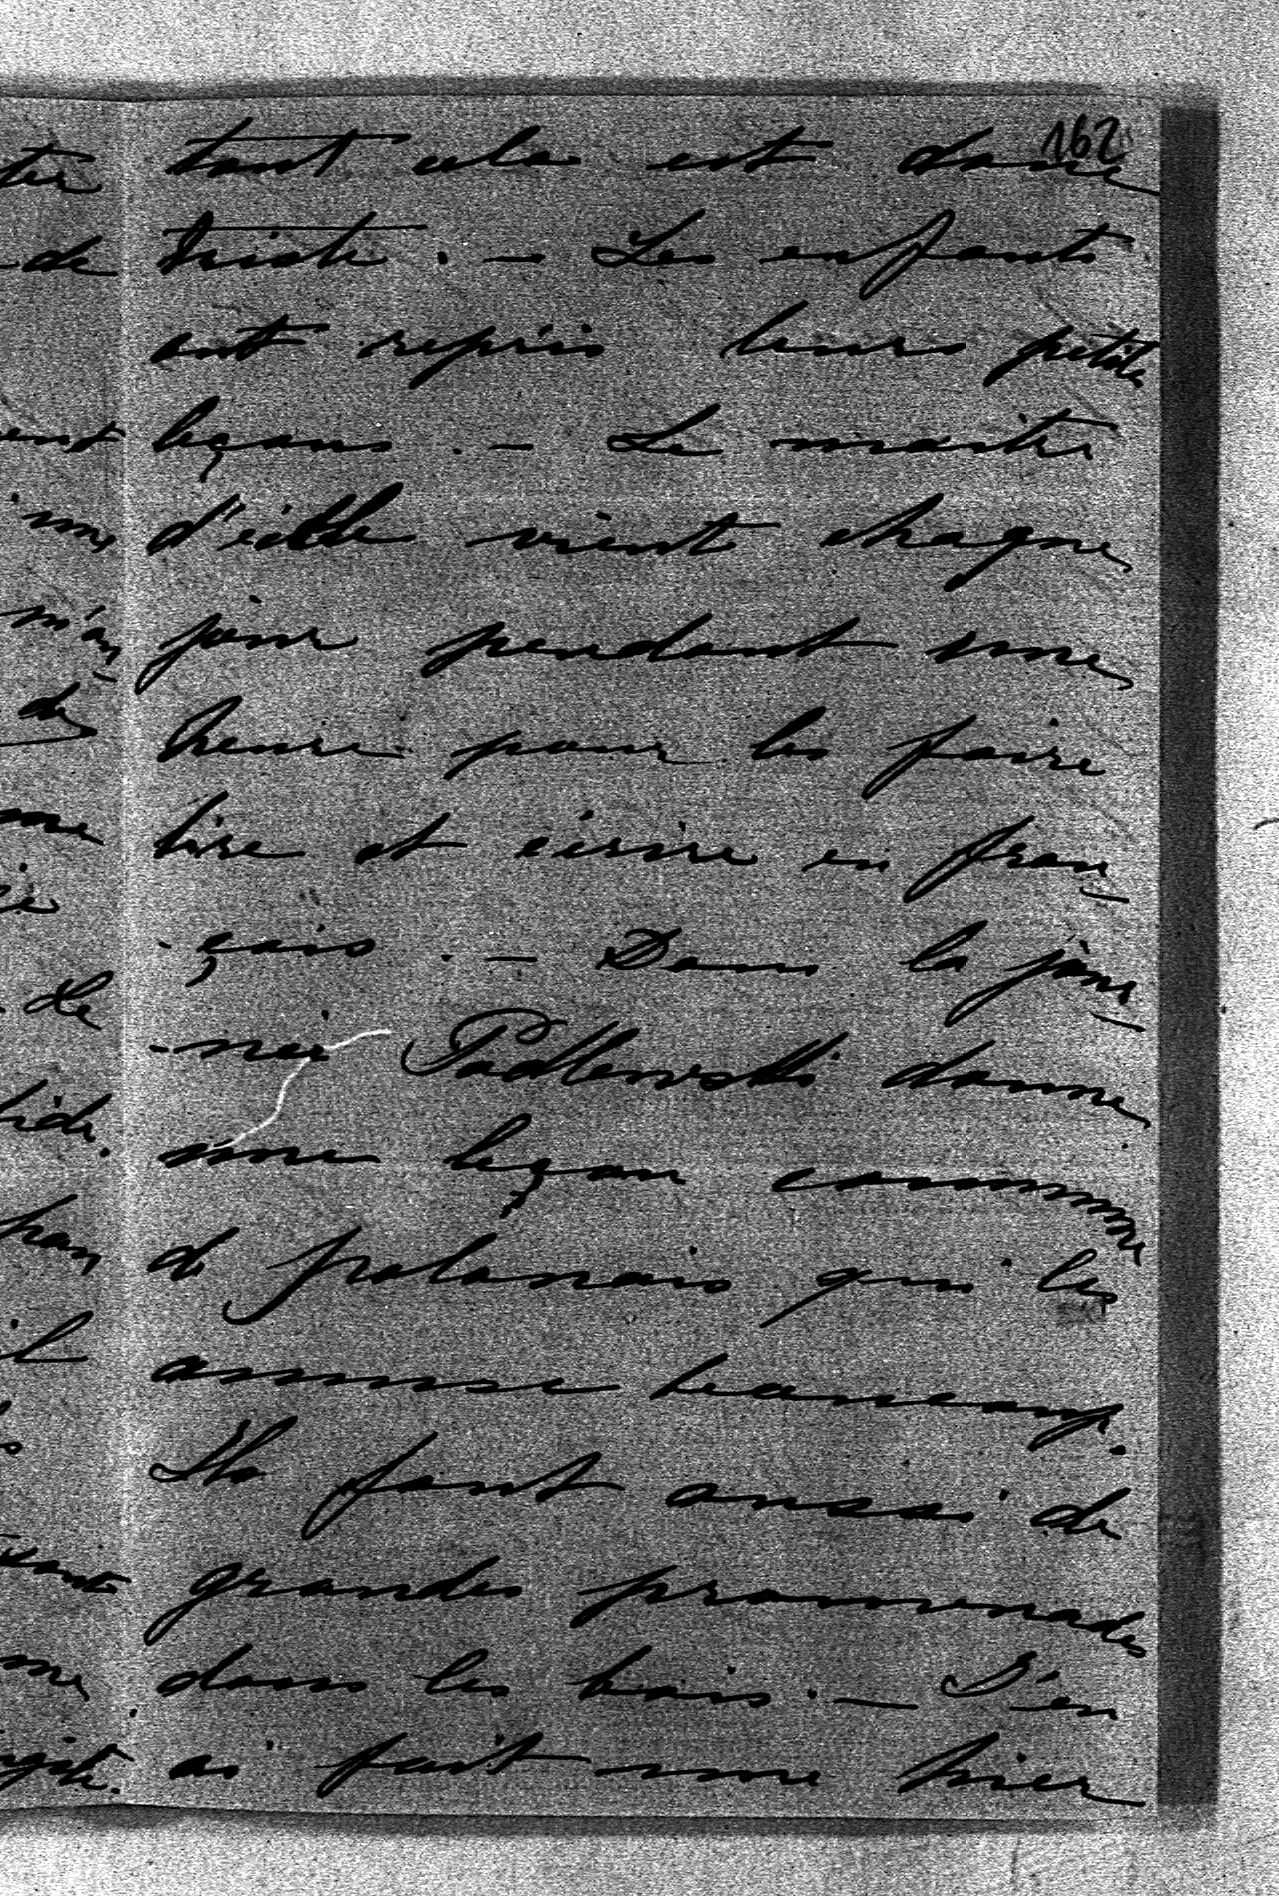 162
tant cela est donc
triste. — Les enfants
ont repris leurs petites
leçons. — Le maître
d'école vient chaque
jour pendant une
heure pour les faire
lire et écrire en fran-
-çais. — Dans la jour-
-née Padlewski donne
une leçon comme
d polonais qui les
amuse beaucoup.
Ils font aussi de
grandes promenades
dans les bois. — J'en
ai fait une hier